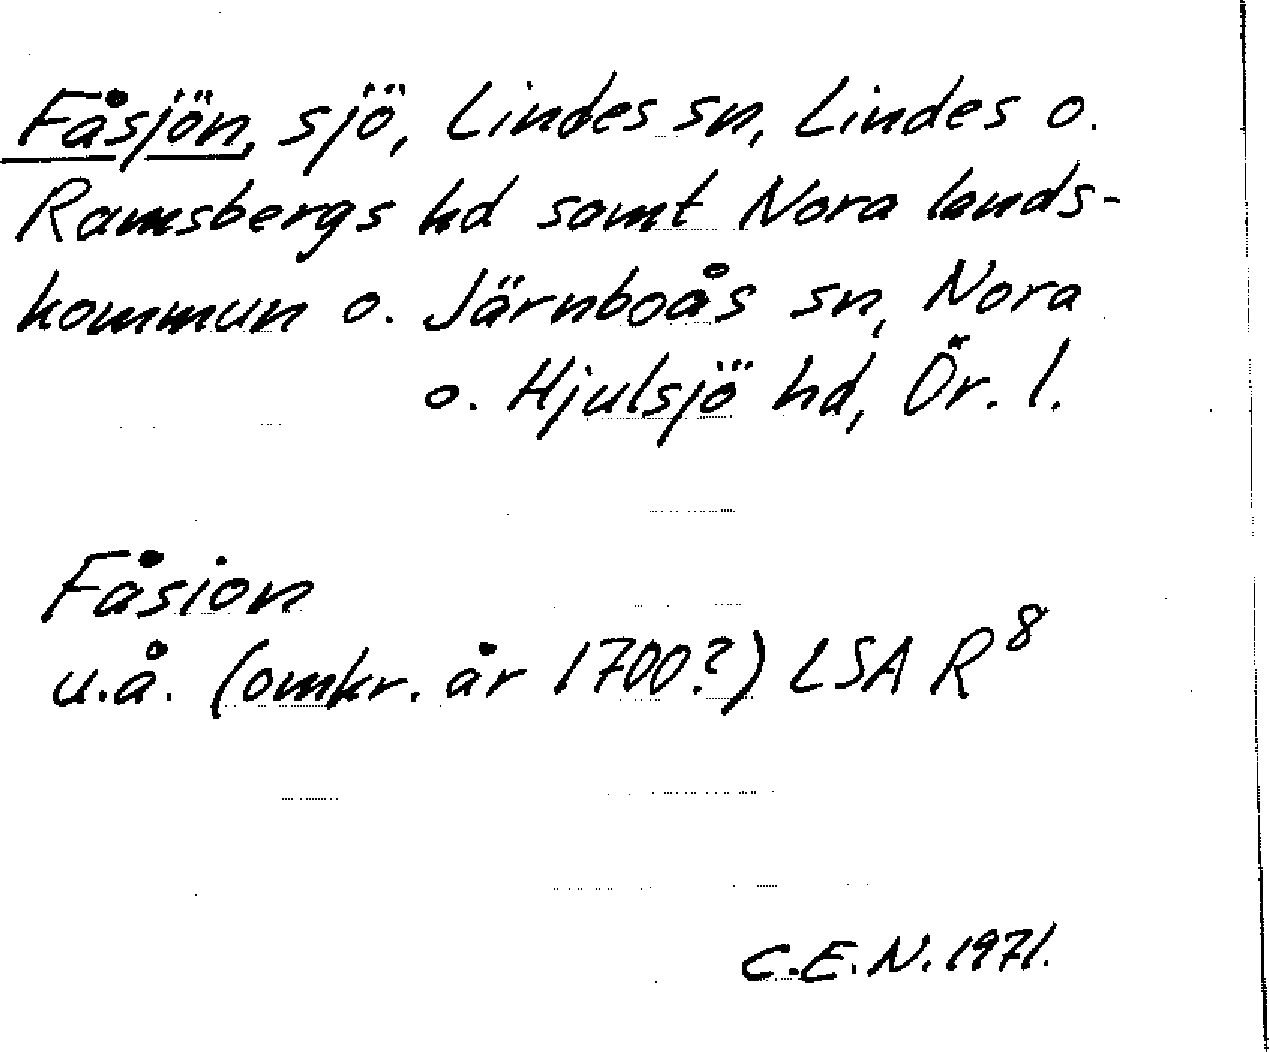 Fåsjön, sjö, Lindes sn, Lindes o.
Ramsbergs hd samt Nora lands-
kommun o. Järnboås sn, Nora
o. Hjulsjö hd, Ör. l.
Fåsion
u.å. (omkr. år 1700?) LSA R⁸
C.E.N. 1971.